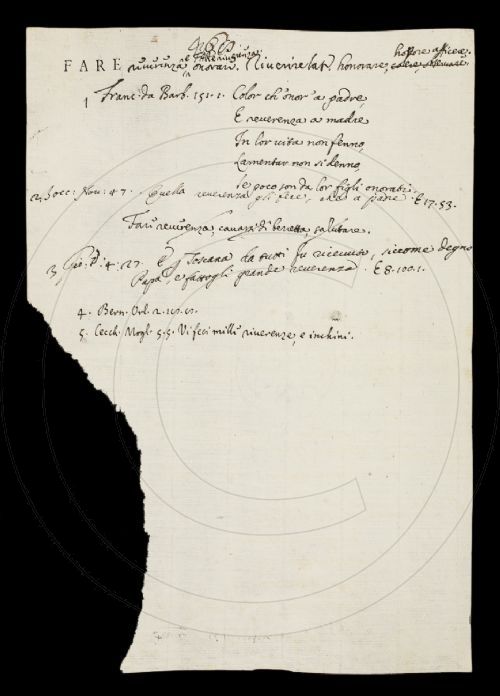 FARE riverenza, onorare. Riverire lat. honorare, colere,
honore afficere
1 Franc. da Barb. 151. 1. Color ch'onor' a padre,
E reverenza a madre
In lor vita non fenno,
Lamentar non si denno,
se poco son da lor figli onorati.
2 Bocc. Nov. 47. Quella reverenza gli fece, che a padre. E 17. 53.
Fare reverenza, cavarsi di berretta, salutare.
3 Gio. V. 4. 27. E J Toscana da tutti fu ricevuto, siccome degno
Papa, e fattogli grande reverenza. E 8. 101. 1.
4. Bern. Orl. 2.
5. Cecch. Mogl. 5. 5. Vi feci mille riverenze, e inchini.